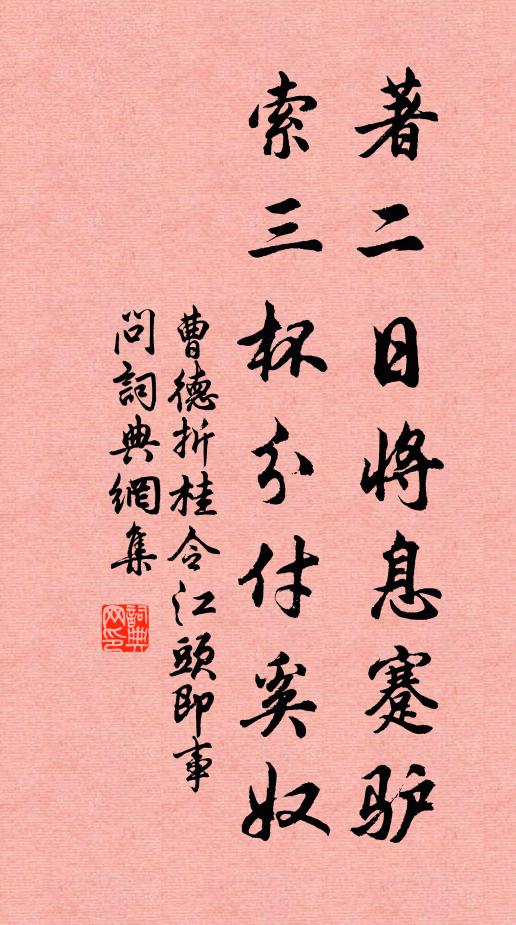 著二日将息蹇驴
索三杯分付奚奴
曹德折桂令江頭即事
問詞典網集
詞典
网印